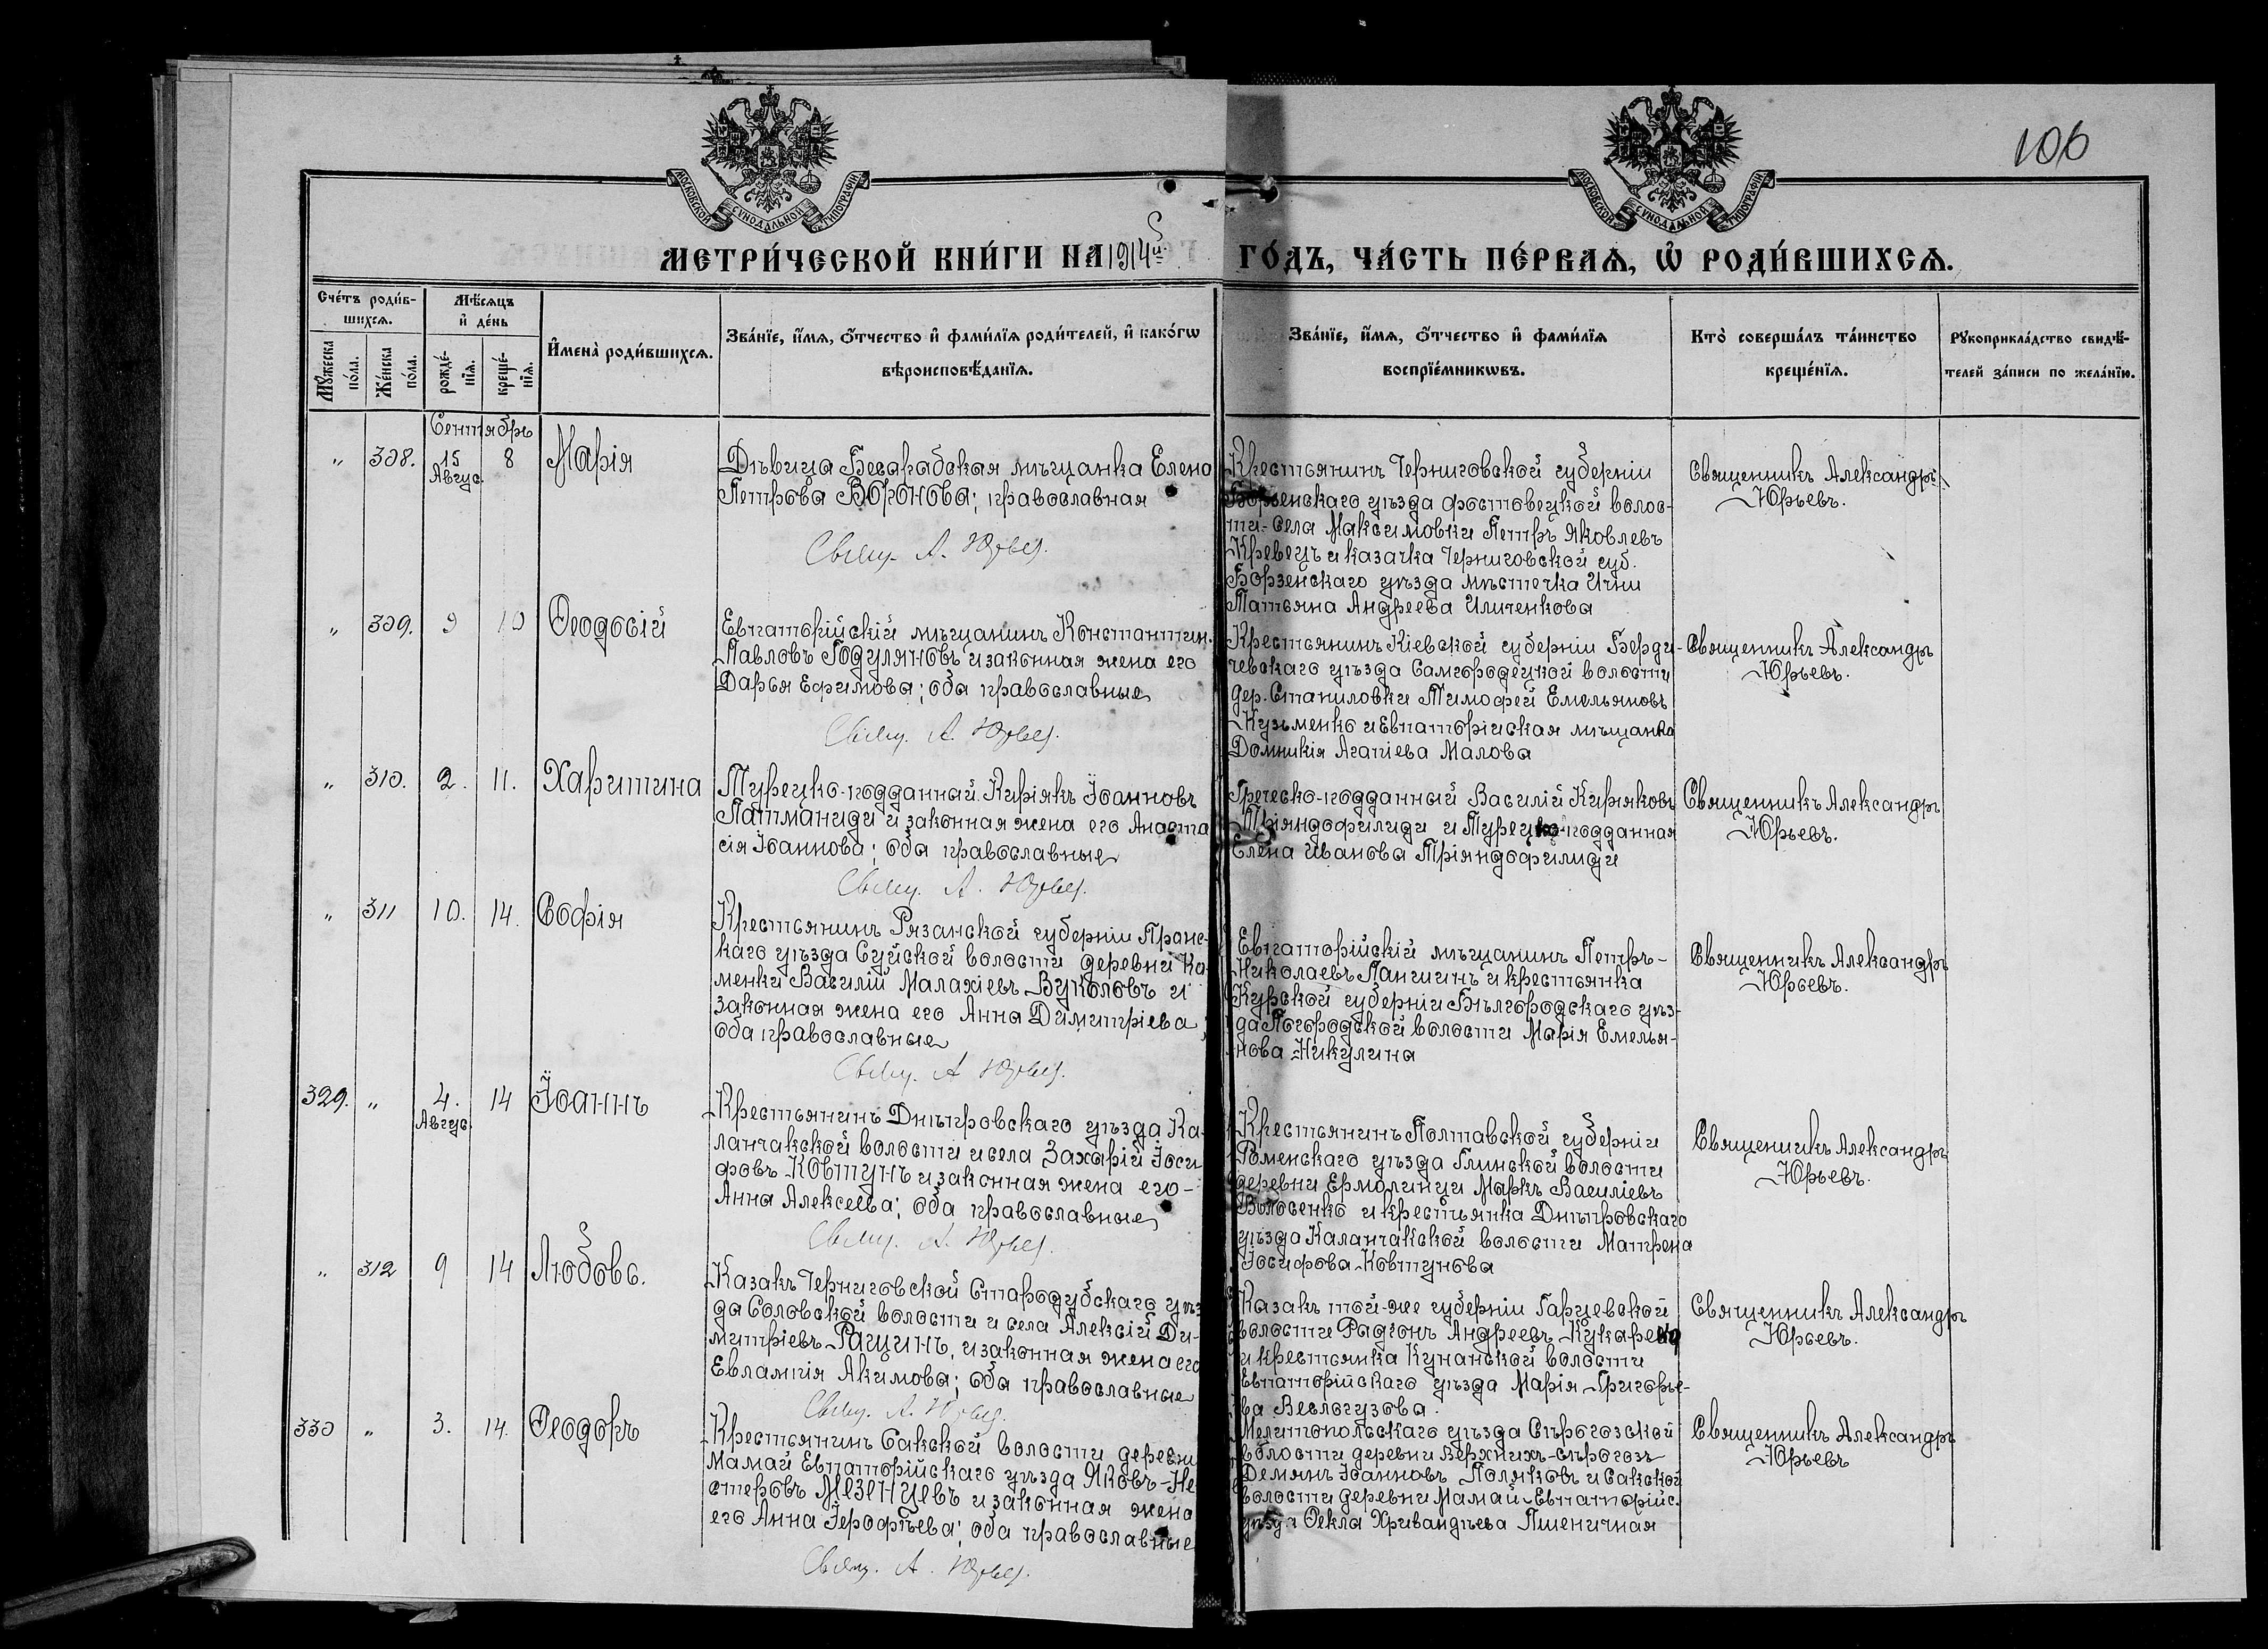 106
МОСКОВСКОЙ СѴНОДАЛЬНОЙ ТИПОГРАФІИ
МОСКОВСКОЙ СѴНОДАЛЬНОЙ ТИПОГРАФІИ
МЕТРИ́ЧЕСКОЙ КНИ́ГИ НА 1914й ГО́ДЪ, ЧА́СТЬ ПЕ́РВАѦ, Ѡ҆ РОДИ́ВШИХСѦ.
Сче́тъ роди́в-
шихсѧ.
Мꙋ́жеска
по́ла.
Же́нска
по́ла.
Мѣ́сѧцъ
и҆ де́нь
рожде́-
нїѧ.
креще́-
нїѧ.
И҆мена̀ роди́вшихсѧ.
Зва́нїе, и҆́мѧ, ѻ҆́тчество и҆ фами́лїѧ роди́телей, и҆ како́гѡ
вѣроисповѣ́данїѧ.
Зва́нїе, и҆́мѧ, ѻ҆́тчество и҆ фами́лїѧ
воспрїе́мникѡвъ.
Кто̀ соверша́лъ та́инство
креще́нїѧ.
Рꙋкоприкла́дство свидѣ́-
телей за́писи по жела́нїю.
Сентябрь
" 308. 15 Авгус. 8 Марія
Дѣвица Бесарабская мѣщанка Елена
Петрова Воронова; православная
Свящ. А. Юрьев.
Крестьянинъ Черниговской губерніи
Борзенскаго уѣзда фостовецкой волос-
ти-села Максимовки Петръ Яковлевъ
Кревецъ и казачка Черниговской губ.
Борзенскаго уѣзда мѣстечка Ични
Татьяна Андреева Иличенкова
Священникъ Александръ
Юрьевъ.
" 309. 9 10 Ѳеодосій
Евпаторійскій мѣщанинъ Константин.
Павловъ Годуляновъ и законная жена его
Дарья Ефимова; оба православные
Свящ. А. Юрьев.
Крестьянинъ Кіевской губерніи Берди-
чевскаго уѣзда Самгородецкой волости
дер. Станиловки Тимофей Емельяновъ
Кузьменко и Евпаторійская мѣщанка
Домникія Агапіева Малова
Священникъ Александръ
Юрьевъ.
" 310. 2. 11. Харитина
Турецко-подданный Киріякъ Іоанновъ
Патманиди и законная жена его Анаста
сія Іоаннова; оба православные
Свящ. А. Юрьев.
Греческо-подданный Василій Киріяковъ
Тріяндофилиди и Турецко-подданная
Елена Иванова Тріяндофилиди
Священникъ Александръ
Юрьевъ.
" 311 10. 14. Софія
Крестьянинъ Рязанской губерніи Пронс-
каго уѣзда Суйской волости деревни Ка-
менки Василій Малахіевъ Вуколовъ и
законная жена его Анна Димитріева;
оба православные
Свящ. А Юрьев.
Евпаторійскій мѣщанинъ Петръ-
Николаевъ Паншинъ и крестьянка
Курской губерніи Бѣлгородскаго уѣз-
да Погородской волости Марія Емелья-
нова Никулина
Священникъ Александръ
Юрьевъ.
329. " 4. Авгус. 14 Іоаннъ
Крестьянинъ Днѣпровскаго уѣзда Ка-
ланчакской волости и села Захарій Іоси
фовъ Ковтунъ и законная жена его-
Анна Алексеева; оба православные
Свящ. А. Юрьев.
Крестьянинъ Полтавской губерніи
Роменскаго уѣзда Глинской волости
деревни Ермолинци Маркъ Василіевъ
Волосенко и крестьянка Днѣпровскаго
уѣзда Каланчакской волости Матрена
Іосифова Ковтунова
Священникъ Александръ
Юрьевъ.
" 312 9 14 Любовь.
Казакъ Черниговской Стародубскаго уѣз
да Соловской волости и села Алексій Ди-
митріевъ Ращинъ, и законная жена его
Евлампія Акимова; оба православные
Свящ. А. Юрьев.
Казакъ той-же губерніи Гарцевской
волости Радіонъ Андреевъ Кукареко
и крестьянка Кунанской волости
Евпаторійскаго уѣзда Марія Григорье-
ва Веслогузова.
Священникъ Александръ
Юрьевъ.
330 " 3. 14. Ѳеодоръ
Крестьянинъ Сакской волости деревни
Мамай Евпаторійскаго уѣзда Яковъ-Не-
стеровъ Мезенцевъ и законная жена
его Анна Іерофѣева; оба православные
Свящ. А. Юрьев.
Мелитопольскаго уѣзда Сѣрогозской
волости деревни Верхнихъ-Сѣрогозъ
Демянъ Іоанновъ Поляковъ и Сакской
волости деревни Мамай-Евпаторійс.
уѣзда Ѳекла Хривандѣева Пшеничная
Священникъ Александръ
Юрьевъ